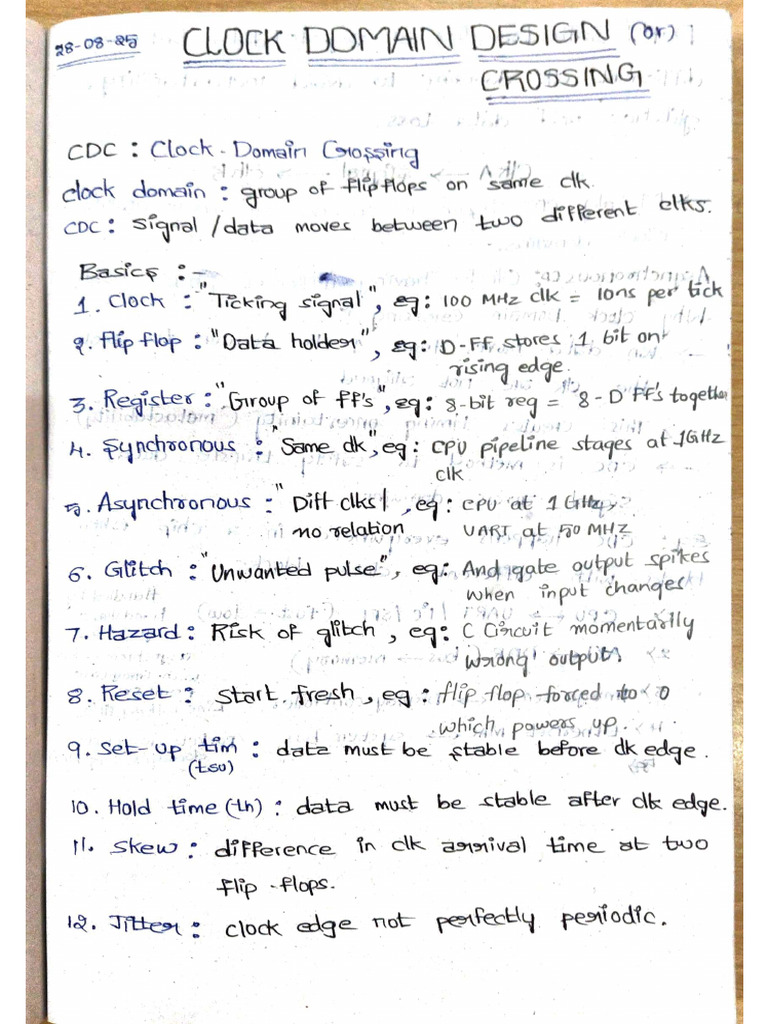 28-08-25 CLOCK DOMAIN DESIGN (or)
CROSSING
CDC : Clock-Domain Crossing
clock domain : group of flipflops on same clk.
CDC : signal /data moves between two different clks.
Basics :-
1. Clock : "Ticking signal", eg: 100 MHz clk = 10ns per tick
2. flip flop : "Data holder", eg: D-FF stores 1 bit on
rising edge.
3. Register : "Group of ff's", eg: 8-bit reg = 8-D FF's together
4. Synchronous : "Same clk", eg: CPU pipeline stages at 1GHz
clk
5. Asynchronous : "Diff clks|, eg: CPU at 1 GHz,
no relation UART at 50 MHZ
6. Glitch : "Unwanted pulse", eg: And gate output spikes
when input changes
7. Hazard : Risk of glitch, eg: C Circuit momentarily
wrong output.
8. Reset : start fresh, eg : flip flop forced to 0
which powers up.
9. Set-up tim : data must be stable before clk edge.
(tsu)
10. Hold time (th) : data must be stable after clk edge.
11. Skew : difference in clk arrival time at two
flip-flops.
12. Jitter : clock edge not perfectly periodic.